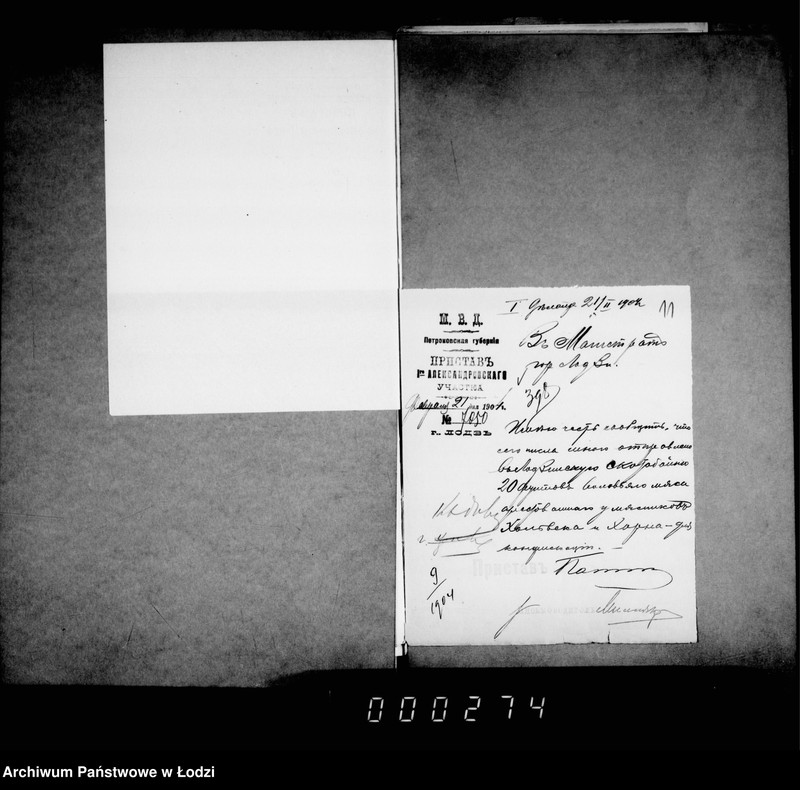 I
21/II 1904
11
М. В. Д.
Петроковская губернія
ПРИСТАВЪ
АЛЕКСАНДРОВСКАГО
УЧАСТКА
Февраля 21 дня 1904 г.
№ 7050
г. ЛОДЗЬ
Въ Магистратъ
гор. Лодзи.
Имѣю честь сообщить, что
сего числа мною отправлено
въ Лодзинскую скотобойню
20 фунтовъ воловьяго мяса
арестованнаго у мясниковъ
и Хорна для
конфискаціи. —
Приставъ
9
1904
000274
Archiwum Państwowe w Łodzi